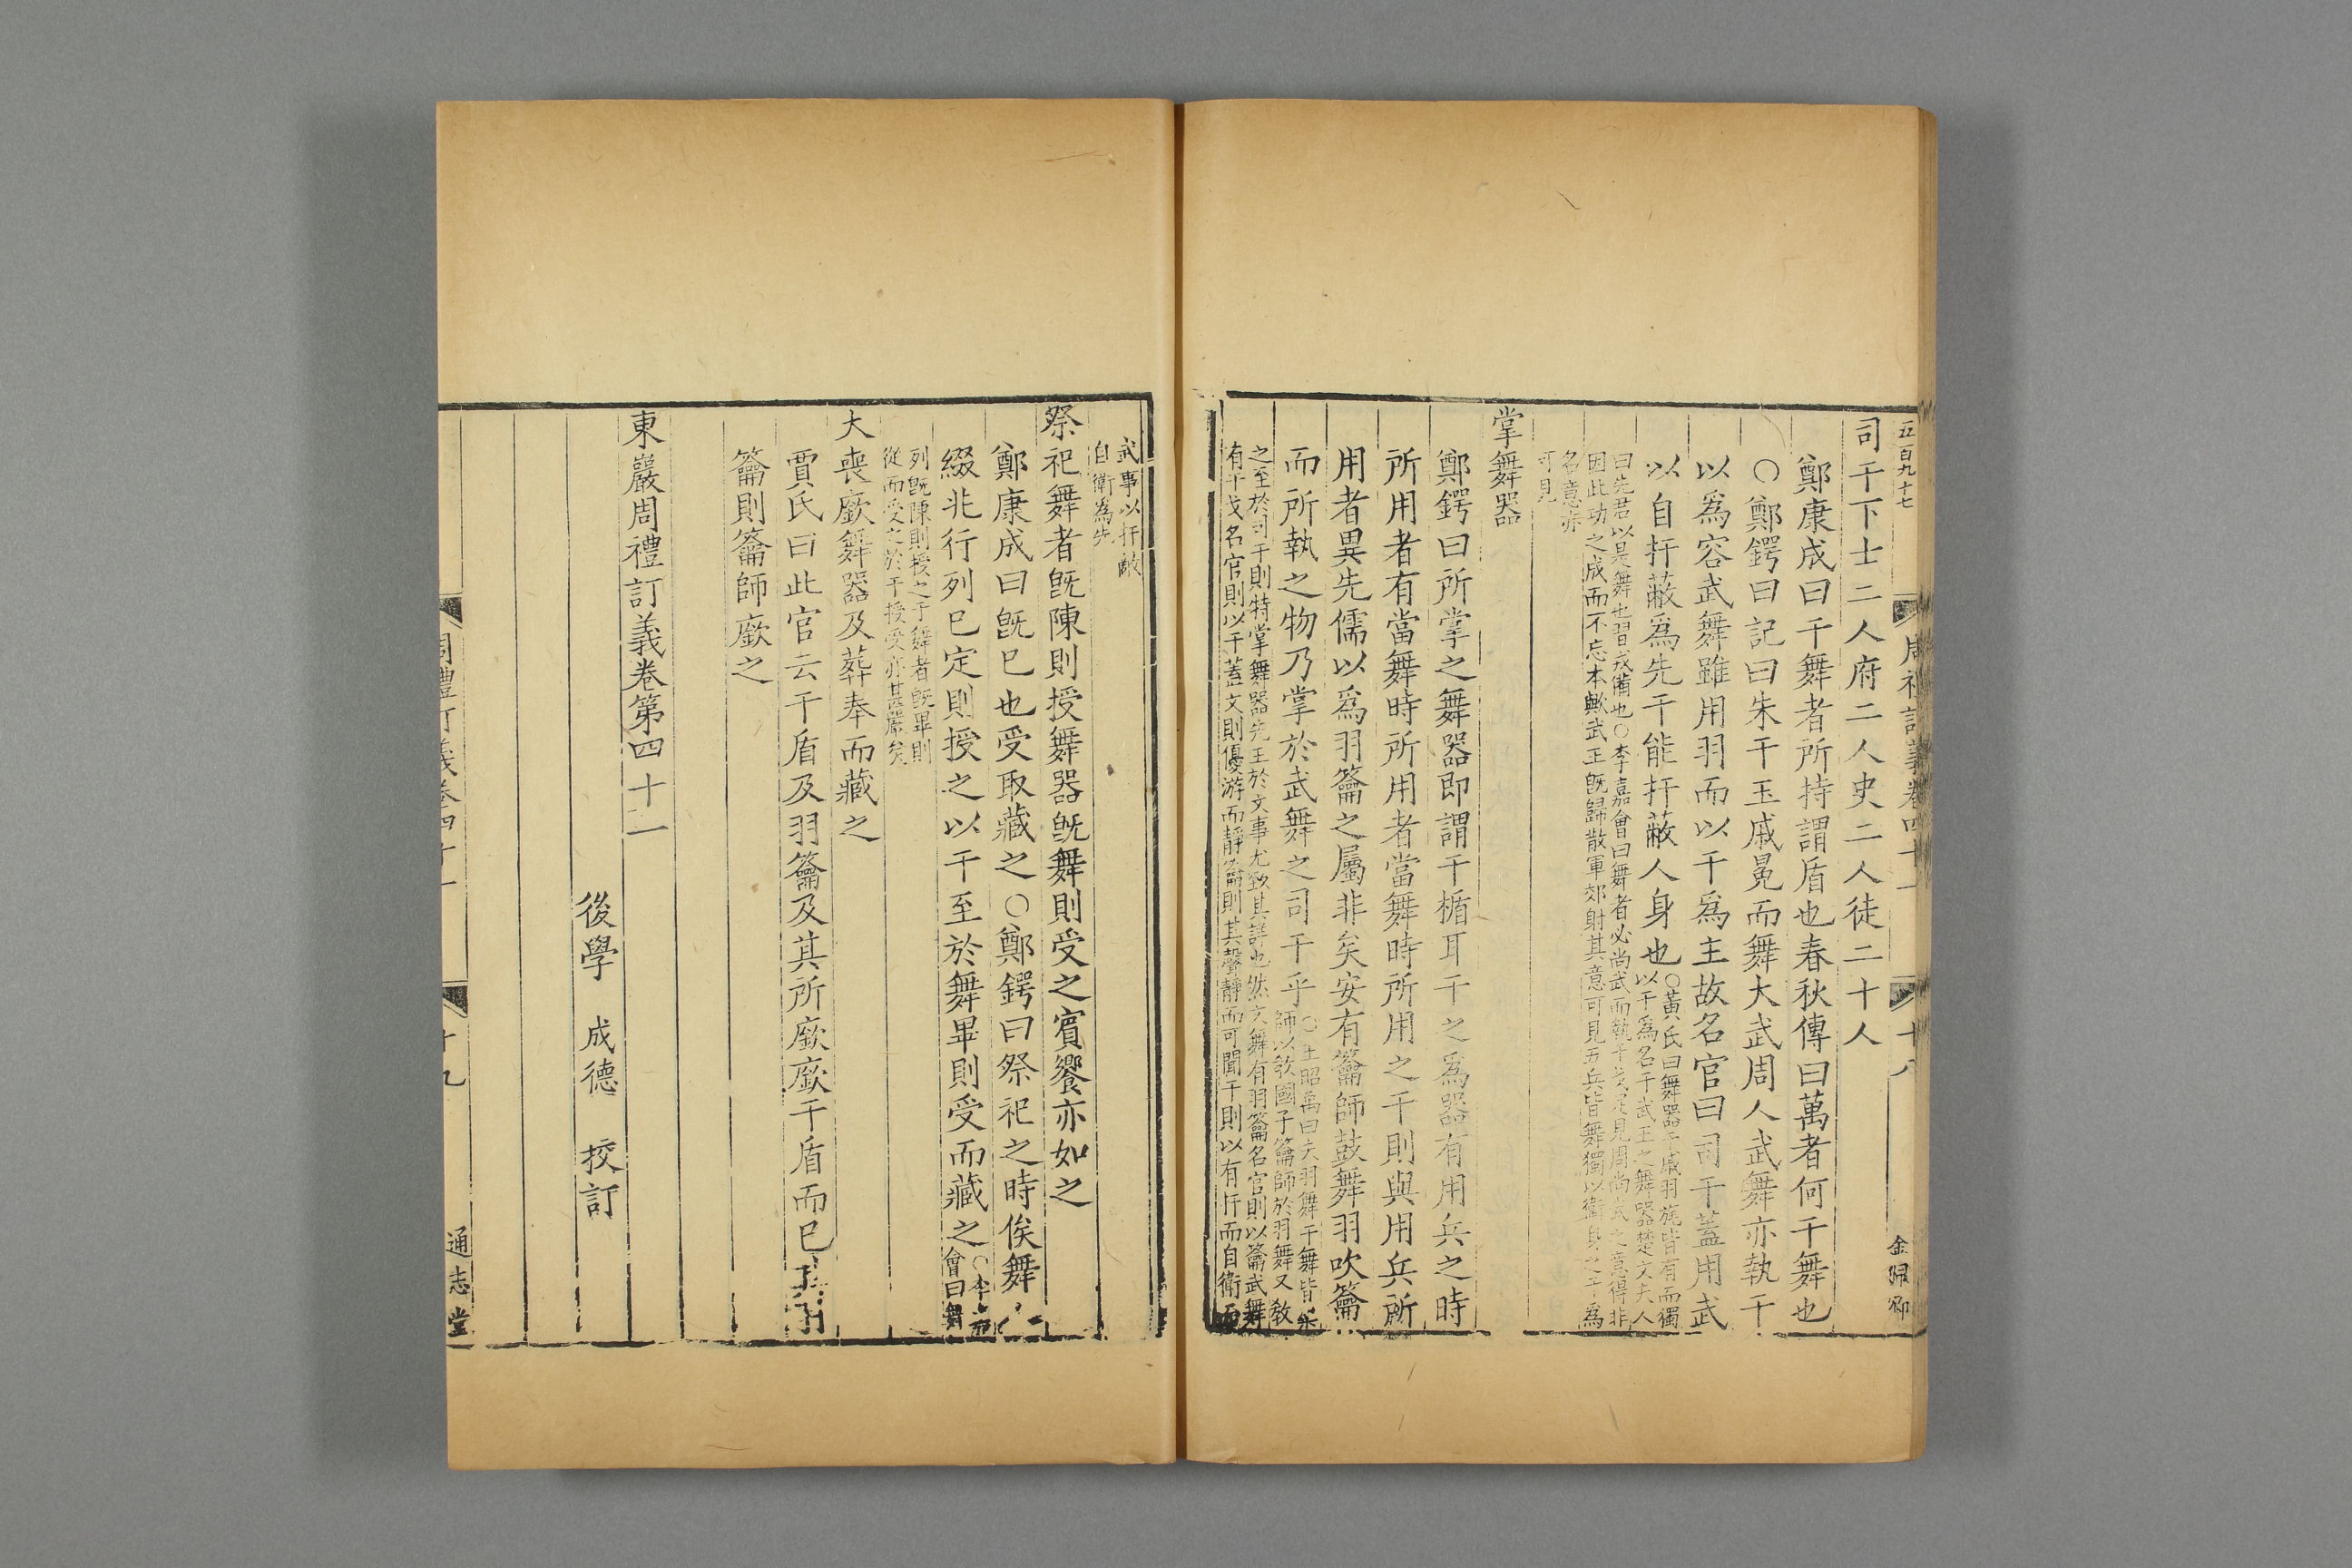 五百九十七
周禮訂義卷四十一
十八
金歸卿
司干下士二人府二人史二人徒二十人
鄭康成曰干舞者所持謂盾也春秋傳曰萬者何干舞也
○鄭鍔曰記曰朱干玉戚冕而舞大武周人武舞亦執干
以爲容武舞雖用羽而以干爲主故名官曰司干蓋用武
以自扞蔽爲先干能扞蔽人身也
○黃氏曰舞器干戚羽旄皆有而獨
以干爲名干武王之舞器楚文夫人
曰先君以是舞也習戎備也○李嘉會曰舞者必尚武而執干戈足見周尚武之意得非
因此功之成而不忘本歟武王旣歸散軍郊射其意可見五兵皆舞獨以衛身之干爲
名意亦
可見
掌舞器
鄭鍔曰所掌之舞器即謂干楯耳干之爲器有用兵之時
所用者有當舞時所用者當舞時所用之干則與用兵所
用者異先儒以爲羽籥之屬非矣安有籥師鼓舞羽吹籥
而所執之物乃掌於武舞之司干乎
○王昭禹曰夫羽舞干舞皆樂
師以敎國子籥師於羽舞又敎
之至於司干則特掌舞器先王於文事尤致其詳也然文舞有羽籥名官則以籥武舞
有干戈名官則以干蓋文則優游而靜籥則其聲靜而可聞干則以有扞而自衛而
武事以扞敵
自衛為先
祭祀舞者旣陳則授舞器旣舞則受之賓饗亦如之
鄭康成曰旣已也受取藏之○鄭鍔曰祭祀之時俟舞
綴兆行列已定則授之以干至於舞畢則受而藏之
○李嘉
會曰舞
列旣陳則授之于舞者旣畢則
從而受之於干授受亦甚嚴矣
大喪廞舞器及葬奉而藏之
賈氏曰此官云干盾及羽籥及其所廞廞干盾而已
籥則籥師廞之
東巖周禮訂義卷第四十一
後學　成德　挍訂
周禮訂義卷四十一
十九
通志堂